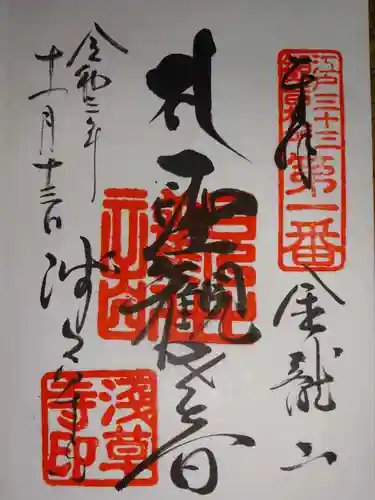 奉拝
江戸三十三
第一番
金龍山
聖観世音
令和三年
十一月十三日
浅草寺
浅草
寺印